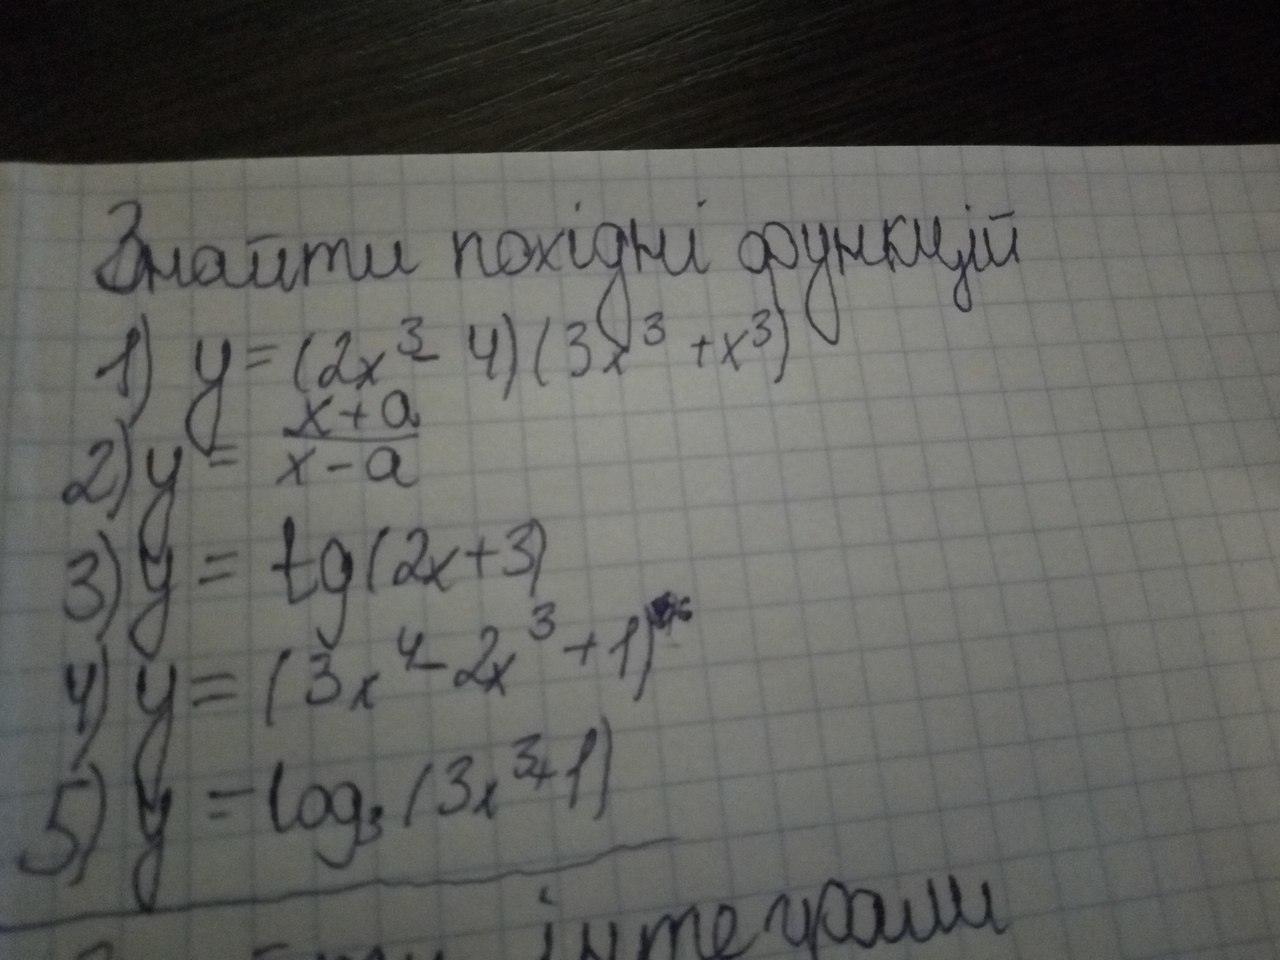 Знайти похідні функцій
1) y = (2x³ - 4)(3x³ + x³)
2) y = (x+a)/(x-a)
3) y = tg(2x+3)
4) y = (3x⁴ - 2x³ + 1)
5) y = log₃(3x³+1)
інтеграли